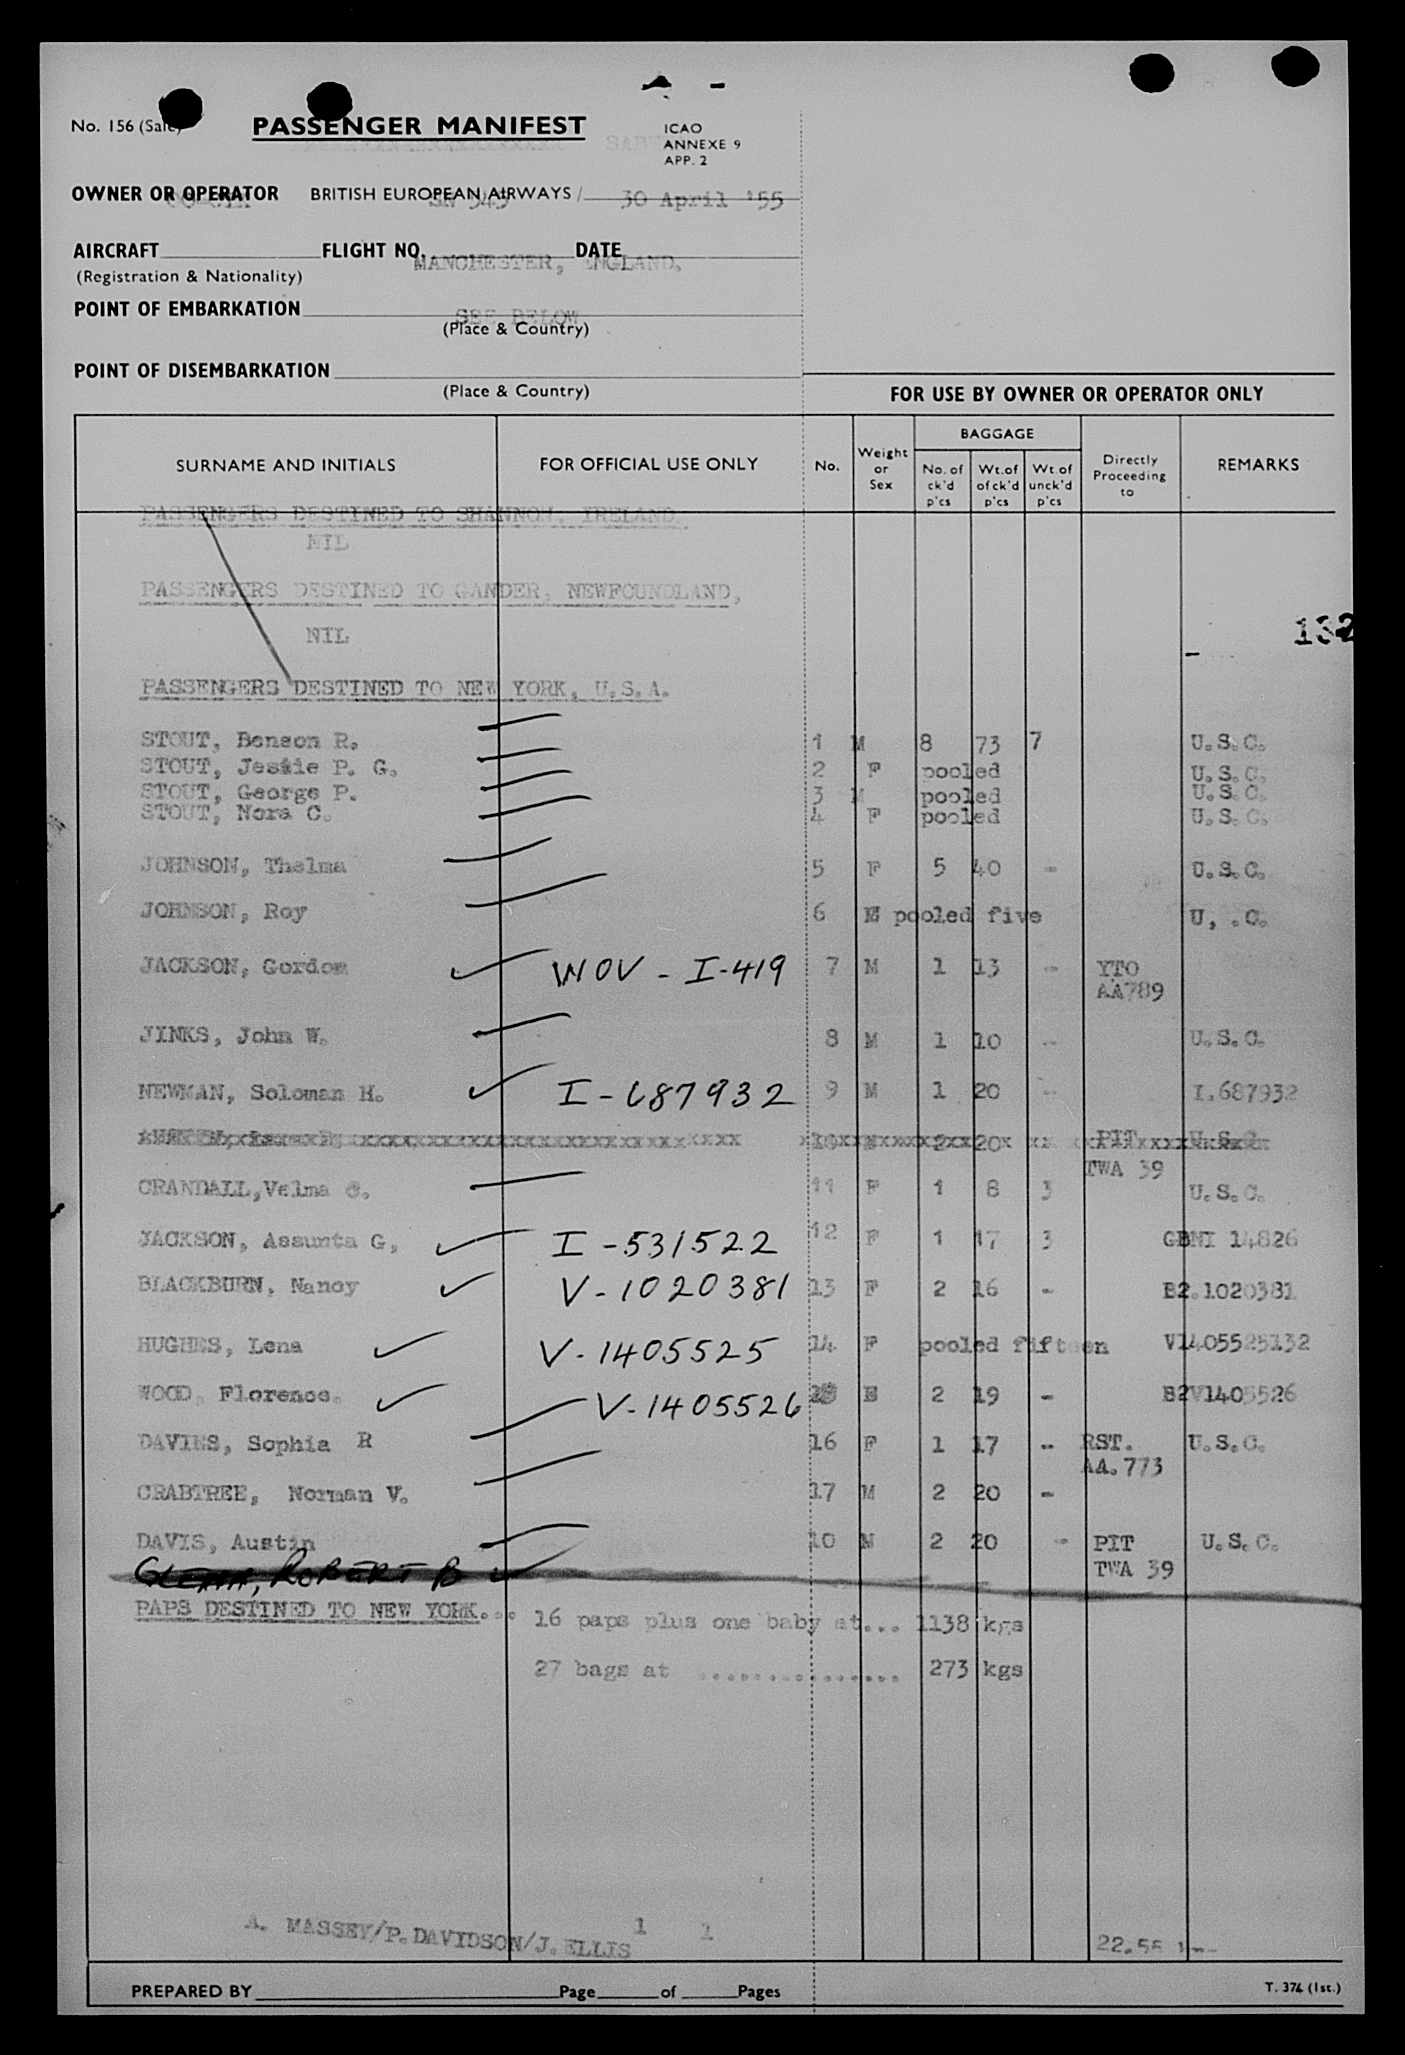 No. 156 (Sale)
PASSENGER MANIFEST
ICAO
ANNEXE 9
APP. 2
OWNER OR OPERATOR BRITISH EUROPEAN AIRWAYS /
SN 549 30 April '55
AIRCRAFT FLIGHT NO. DATE
MANCHESTER, ENGLAND.
(Registration & Nationality)
POINT OF EMBARKATION
SEE BELOW
(Place & Country)
POINT OF DISEMBARKATION
(Place & Country)
FOR USE BY OWNER OR OPERATOR ONLY
SURNAME AND INITIALS FOR OFFICIAL USE ONLY No. Weight or Sex BAGGAGE No. of ck'd p'cs Wt. of ofck'd p'cs Wt. of unck'd p'cs Directly Proceeding to REMARKS
PASSENGERS DESTINED TO SHANNON, IRELAND.
NIL
PASSENGERS DESTINED TO GANDER, NEWFOUNDLAND,
NIL
132
PASSENGERS DESTINED TO NEW YORK, U.S.A.
STOUT, Benson R. 1 M 8 73 7 U.S.C.
STOUT, Jessie P. G. 2 F pooled U.S.C.
STOUT, George P. 3 M pooled U.S.C.
STOUT, Nora C. 4 F pooled U.S.C.
JOHNSON, Thelma 5 F 5 40 - U.S.C.
JOHNSON, Roy 6 M pooled five U, .C.
JACKSON, Gordom WOV - I-419 7 M 1 13 - YTO
AA789
JINKS, John W. 8 M 1 10 - U.S.C.
NEWMAN, Soloman H. I-687932 9 M 1 20 - I.687932
2 20 PIT U.S.C.
TWA 39
CRANDALL,Velma C. 11 F 1 8 3 U.S.C.
JACKSON, Assunta G, I-531522 12 F 1 17 3 GBNI 14826
BLACKBURN, Nancy V-1020381 13 F 2 16 - B2.1020381
HUGHES, Lena V-1405525 14 F pooled fifteen V1405525132
WOOD, Florence. V-1405526 2 19 - B2V1405526
DAVIES, Sophia R 16 F 1 17 - RST. U.S.C.
AA.773
CRABTREE, Norman V. 17 M 2 20 -
DAVIS, Austin 10 M 2 20 - PIT U.S.C.
TWA 39
ROBERT B
PAPS DESTINED TO NEW YORK... 16 paps plus one baby at... 1138 kgs
27 bags at ............... 273 kgs
A. MASSEY/P.DAVIDSON/J.ELLIS 1 1 22.55
PREPARED BY Page of Pages T. 374 (1st.)